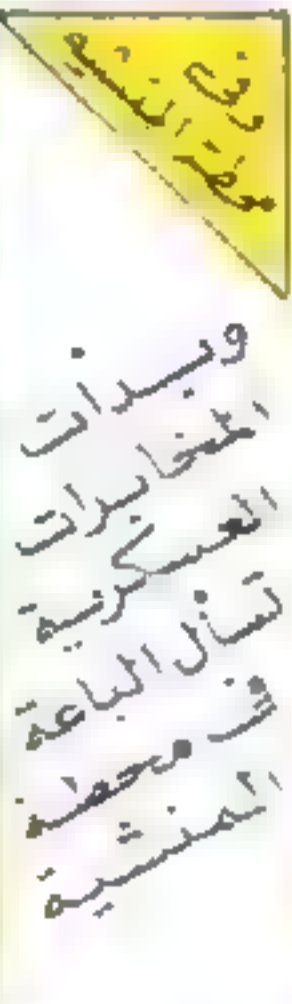 وفي
محطة المنشية
وبدأت
المخابرات
العسكرية
تسأل الباعة
في محطة
المنشية